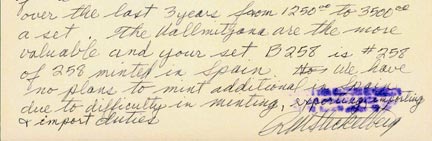 over the last 3 years from 1250.00 to 3500.00
a set. The Vallmitjana are the more
valuable and your set B258 is #258
of 258 minted in Spain. We have
no plans to mint additional
due to difficulty in minting, exporting
& import duties